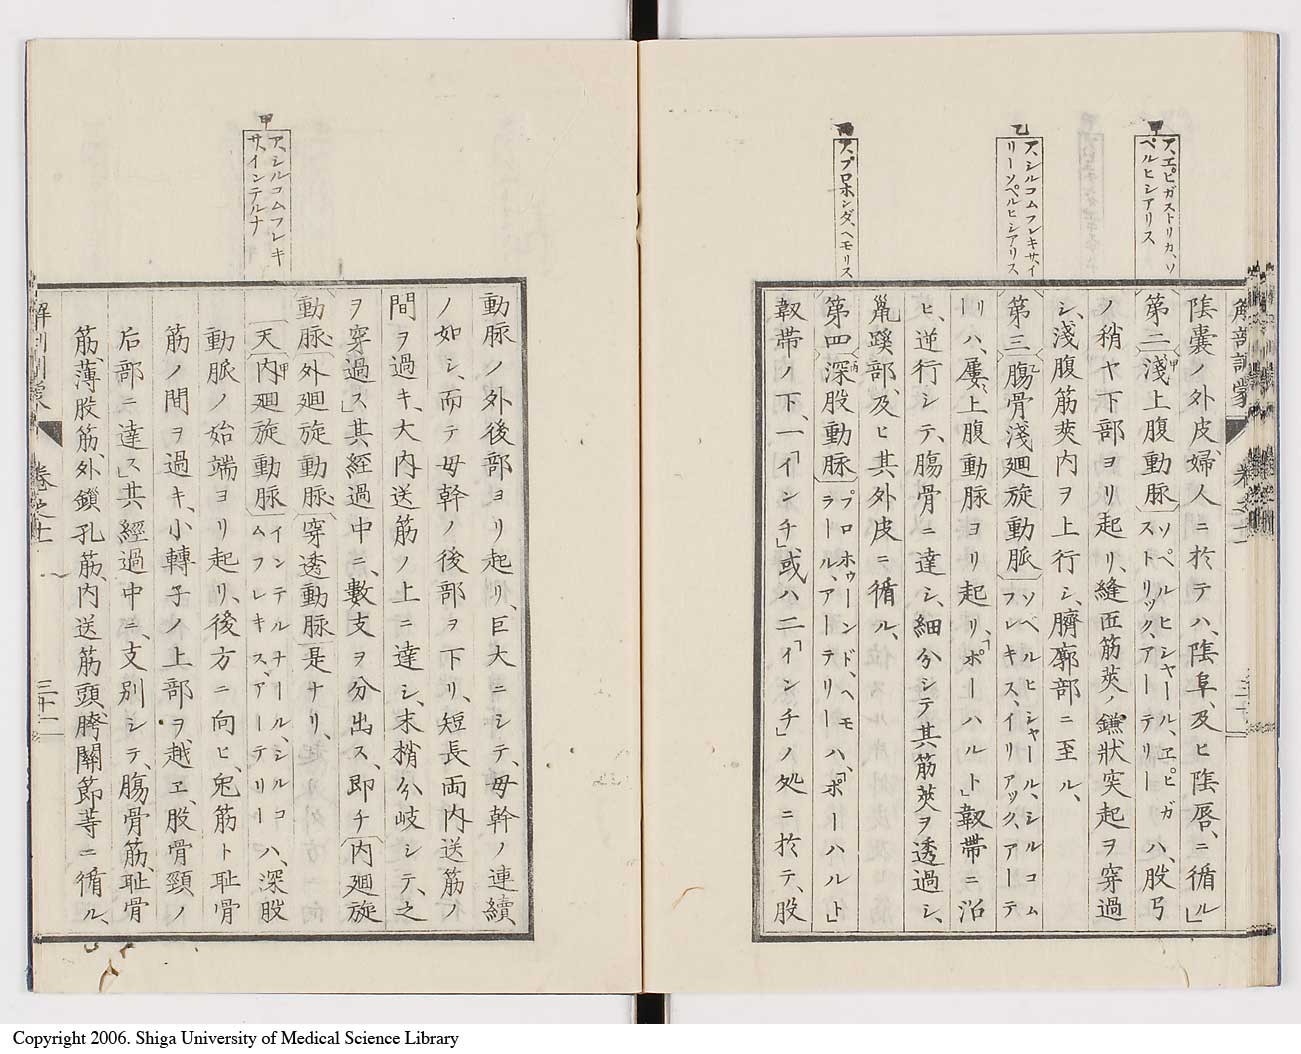 甲
ア、エピガストリカ、ソ
ペルヒシアリス
乙
ア、シルコムフレキサ、イ
リーソペルヒシアリス
丙
ア、プロホンダ、ヘモリス
陰嚢ノ外皮、婦人ニ於テハ、陰阜、及ヒ陰唇、ニ循ル」
第二淺上腹動脉ソペルヒシャール、エピガストリック、アーテリーハ、股弓
ノ稍ヤ下部ヨリ起リ、縫匠筋莢ノ鎌狀突起ヲ穿過
シ、淺腹筋莢内ヲ上行シ、臍廓部ニ至ル、
第三腸骨淺廻旋動脈ソペルヒシャール、シルコムフレキス、イリアック、アーテ
リハ、屡、上腹動脉ヨリ起リ、「ポーハルト」韌帶ニ沿
ヒ、逆行シテ、腸骨ニ達シ、細分シテ其筋莢ヲ透過シ、
鼠蹊部、及ヒ其外皮ニ循ル、
第四深股動脉プロホゥーンド、ヘモラール、アーテリーハ、「ポーハルト」
韌帶ノ下、一「インチ」或ハ二「インチ」ノ処ニ於テ、股
解剖訓蒙
甲
ア、シルコムフレキ
サ、インテルナ
動脉ノ外後部ヨリ起リ、巨大ニシテ、母幹ノ連續
ノ如シ、而テ母幹ノ後部ヲ下リ、短長両内送筋ノ
間ヲ過キ、大内送筋ノ上ニ達シ、末梢分岐シテ、之
ヲ穿過ス」其經過中ニ、數支ヲ分出ス、即チ内廻旋
動脉外廻旋動脉穿透動脉是ナリ、
天内廻旋動脉インテルナール、シルコムフレキス、アーテリーハ、深股
動脈ノ始端ヨリ起リ、後方ニ向ヒ、兎筋ト耻骨
筋ノ間ヲ過キ、小轉子ノ上部ヲ越ヱ、股骨頸ノ
后部ニ達ス」其經過中ニ、支別シテ、腸骨筋、耻骨
筋、薄股筋、外鎖孔筋、内送筋頭胯關節等ニ循ル、
解剖訓蒙
卷之十一
三十二
Copyright 2006. Shiga University of Medical Science Library